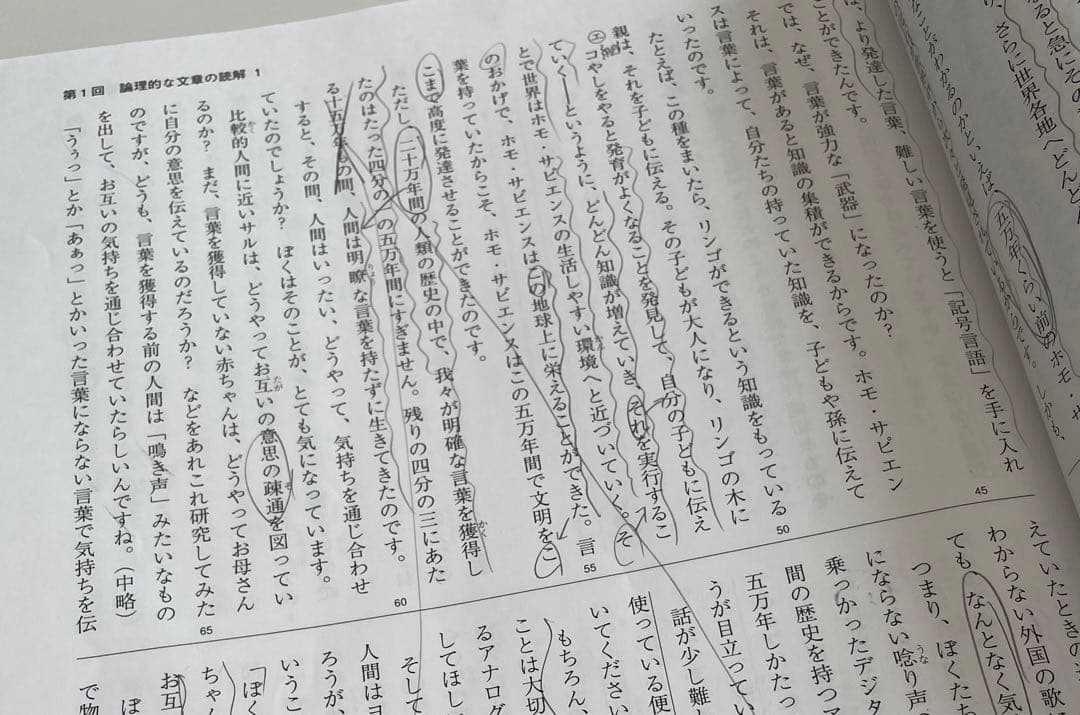 ると急にその
り、さらに世界各地へどんどん
なことがわかるのかといえば
五万年くらい前のホモ・サ
、より発達した言葉、難しい言葉を使うと「記号言語」を手に入れ
ことができたんです。
では、なぜ、言葉が強力な「武器」になったのか?
それは、言葉があると知識の集積ができるからです。ホモ・サピエン
スは言葉によって、自分たちの持っていた知識を、子どもや孫に伝えて
いったのです。
たとえば、この種をまいたら、リンゴができるという知識をもっている
親は、それを子どもに伝える。その子どもが大人になり、リンゴの木に
エコやしをやると発育がよくなることを発見して、自分の子どもに伝え
ていく――というように、どんどん知識が増えていき、それを実行するこ
とで世界はホモ・サピエンスの生活しやすい環境へと近づいていく。そ
のおかげで、ホモ・サピエンスはこの地球上に栄えることができた。言
葉を持っていたからこそ、ホモ・サピエンスはこの五万年間で文明をこ
こまで高度に発達させることができたのです。
ただし、二十万年間の人類の歴史の中で、我々が明確な言葉を獲得し
たのはたった四分の一の五万年間にすぎません。残りの四分の三にあた
る十五万年もの間、人間は明瞭な言葉を持たずに生きてきたのです。
すると、その間、人間はいったい、どうやって、気持ちを通じ合わせ
ていたのでしょうか? ぼくはそのことが、とても気になっています。
比較的人間に近いサルは、どうやってお互いの意思の疎通を図ってい
るのか? まだ、言葉を獲得していない赤ちゃんは、どうやってお母さん
に自分の意思を伝えているのだろうか? などをあれこれ研究してみた
のですが、どうも、言葉を獲得する前の人間は「鳴き声」みたいなもの
を出して、お互いの気持ちを通じ合わせていたらしいんですね。(中略)
「うぅっ」とか「あぁっ」とかいった言葉にならない言葉で気持ちを伝
第1回 論理的な文章の読解 1
45
50
55
60
65
えていたときの
わからない外国の歌
ても、なんとなく気
つまり、ぼくたち
にならない唸り声
乗っかったデジタ
間の歴史を持つア
五万年しかたっ
うが目立ってい
話が少し難し
使っている便
いてください
もちろん、
ことは大切
るアナログ
してほし
そして
人間はヨ
ろうが、
いうこ
「ぼく
ちゃん
お互
ぼ
で物